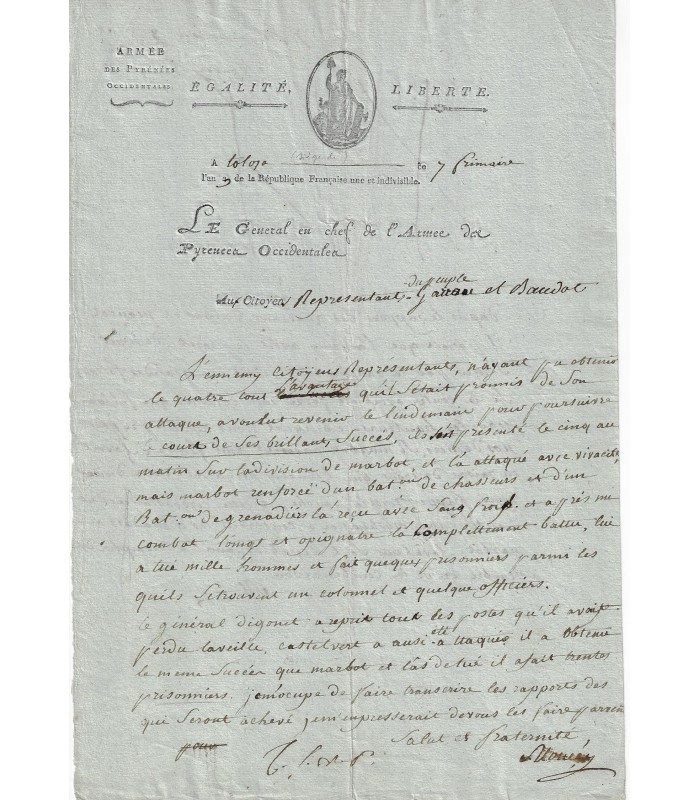 ARMÉE
DES PYRÉNÉES
OCCIDENTALES.
ÉGALITÉ, LIBERTÉ.
A tolosa ce 7 frimaire
l'an 3 de la République Française une et indivisible.
LE Général en chef de l'Armée des
Pyrenees Occidentales
Aux Citoyens Representants du peuple Garrau et Baudot
L'ennemy Citoyens Représentants, n'ayant pu obtenir
le quatre tout l'avantage qu'il S'etait promis de Son
attaque, a voulut revenir le lendemain pour poursuivre
le cours de Ses brillants Succés, il s'est présenté le cinq au
matin Sur la division de marbot, et l'a attaqué avec vivacité,
mais marbot renforcé d'un bat.on de chasseurs et d'un
Bat.on de grenadiers l'a reçu avec Sang froid et après un
combat longt et opignatre l'a Complettement battu, lui
a tué mille hommes et fait queques prisonniers parmi les
quels Se trouvent un colonnel et quelque officiers.
le général digonet a reprit tout les postes qu'il avait
perdu la veille, castelvert a ausi été attaqué, il a Obtenu
le meme Succés que marbot et l'as détué il a fait trentes
prisonniers. je m'ocupe de faire transcrire les rapports des
que Seront achevé, j'em'empresserait de vous les faire parvenir
pour
Salut et fraternité
T. S. V. P.
Moncey